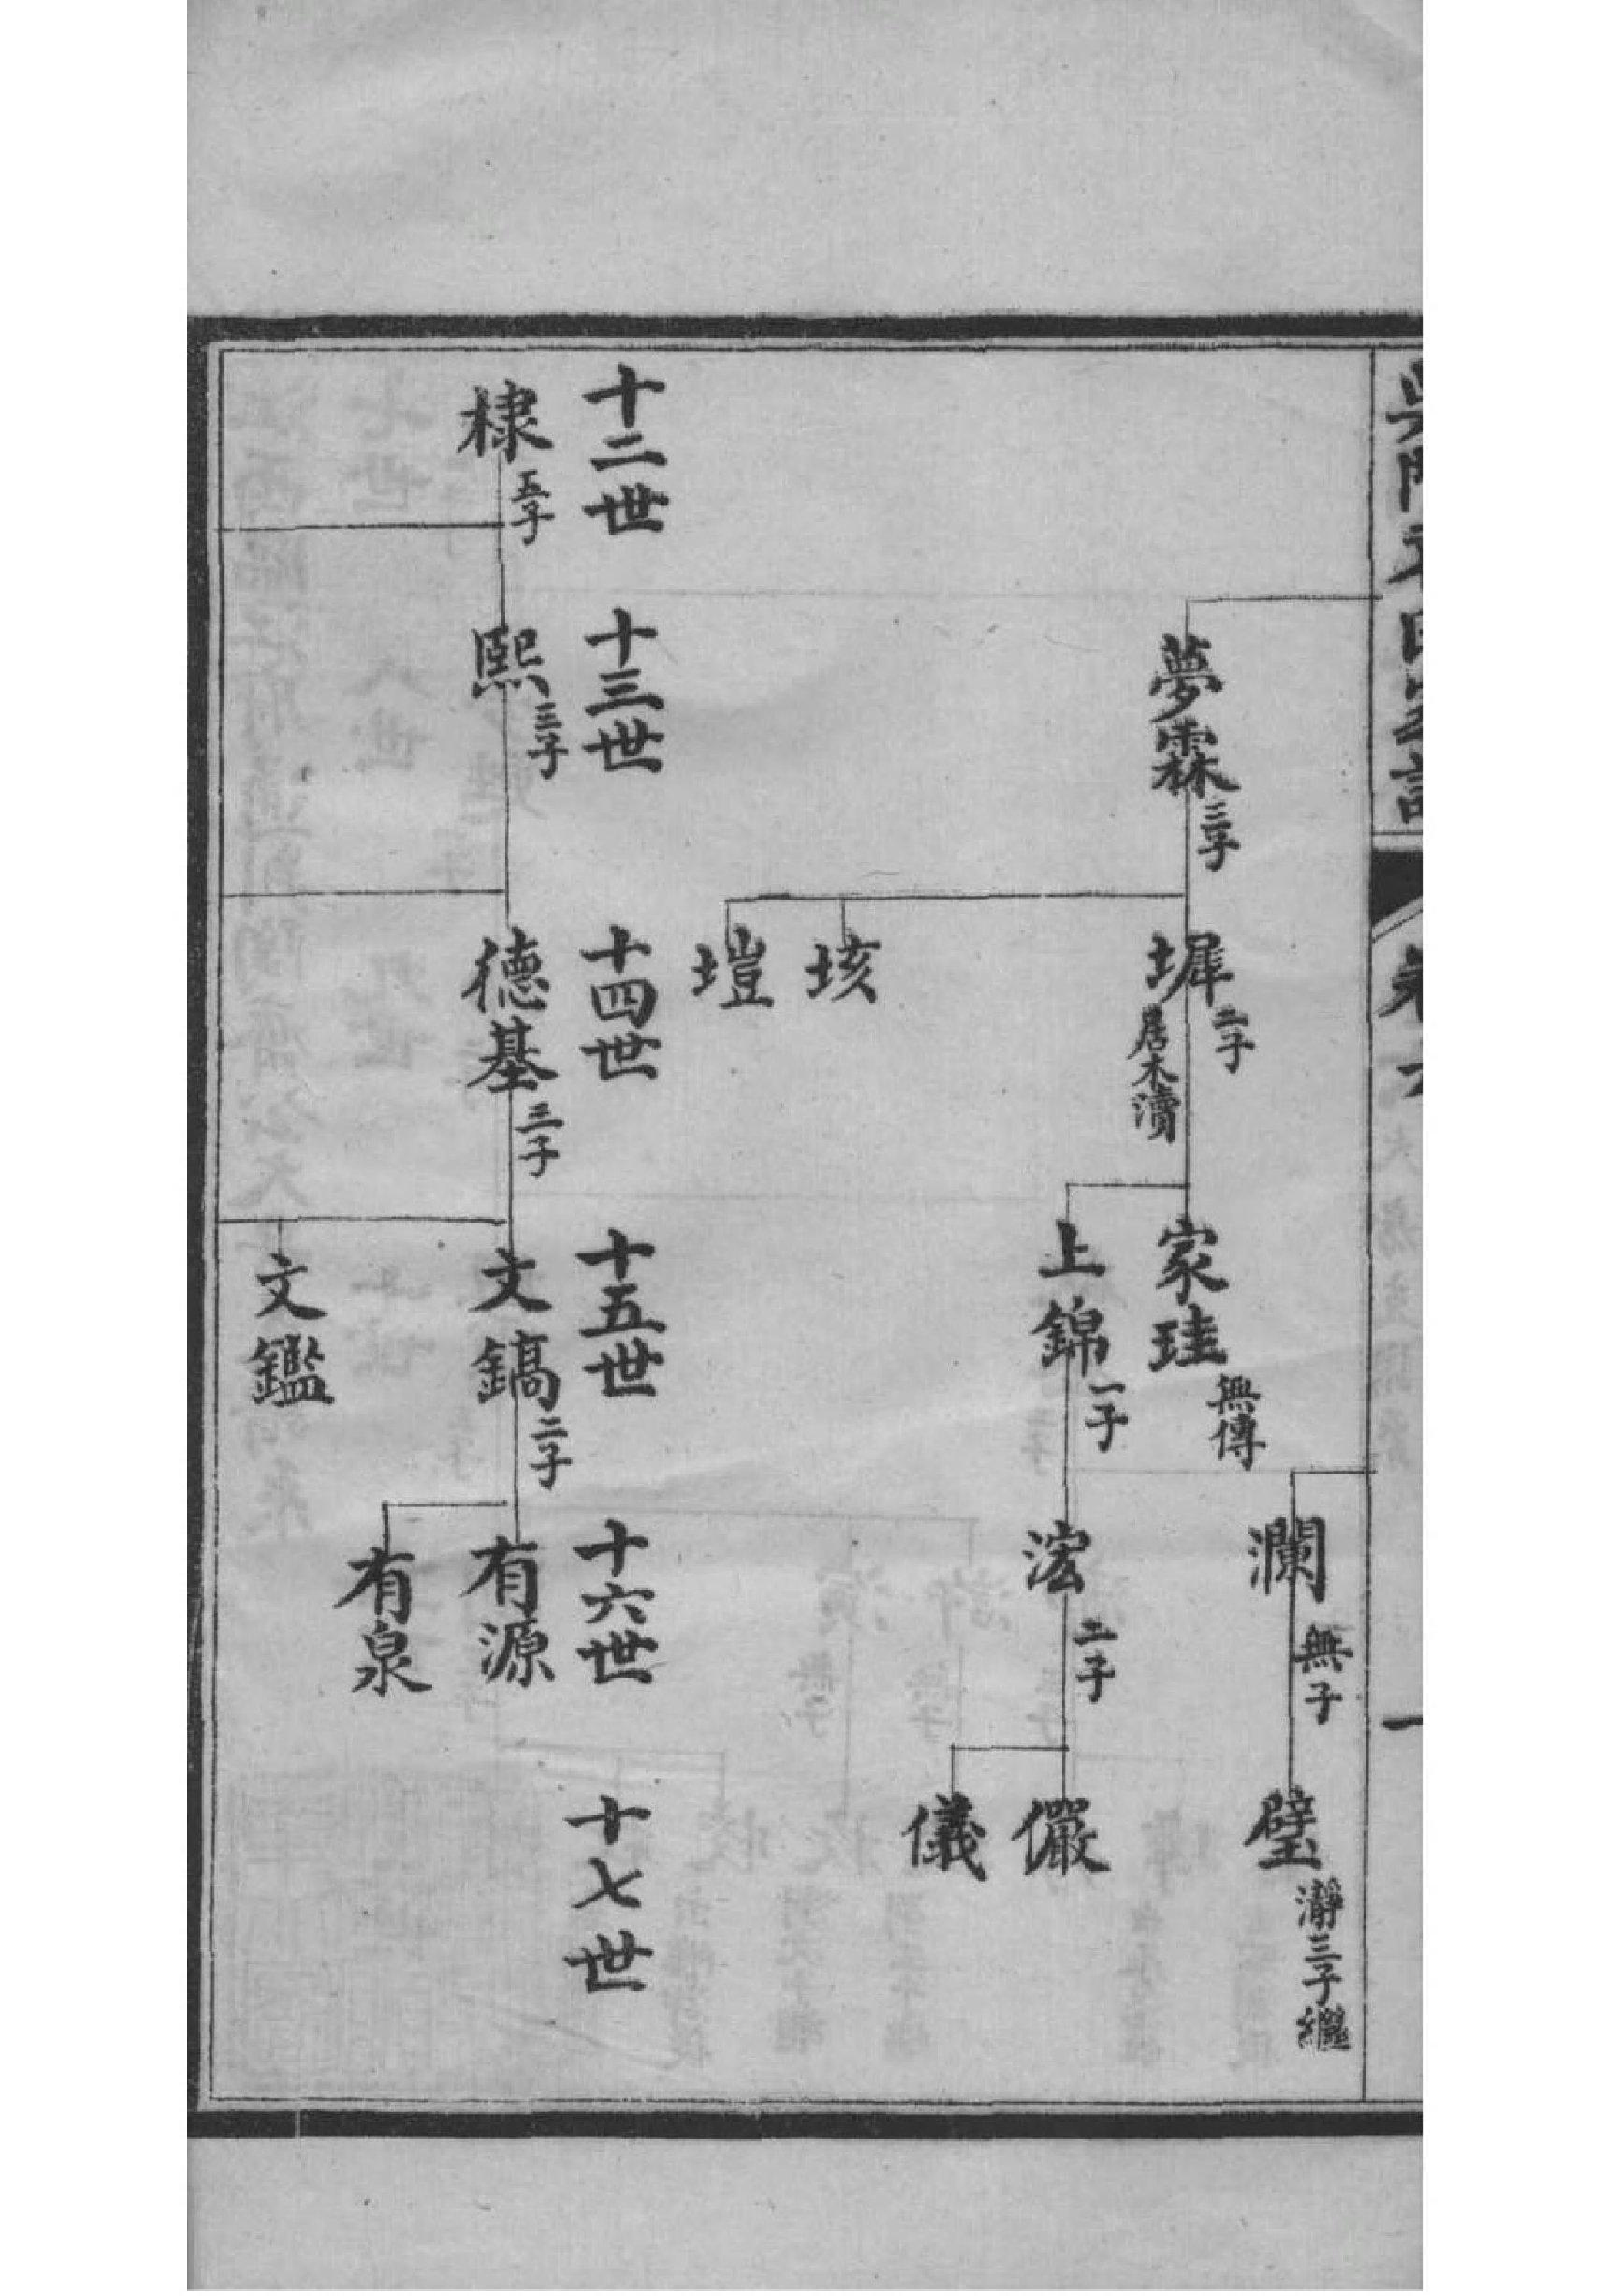 卷六
一
夢霖 三子
墀 二子 居木瀆
垓
塏
家珪 無傳
上錦 一子
瀾 無子
浤 二子
璧 瀞三子繼
儼
儀
十二世
十三世
十四世
十五世
十六世
十七世
棣 五子
熙 三子
德基 三子
文鎬 二子
文鑑
有源
有泉